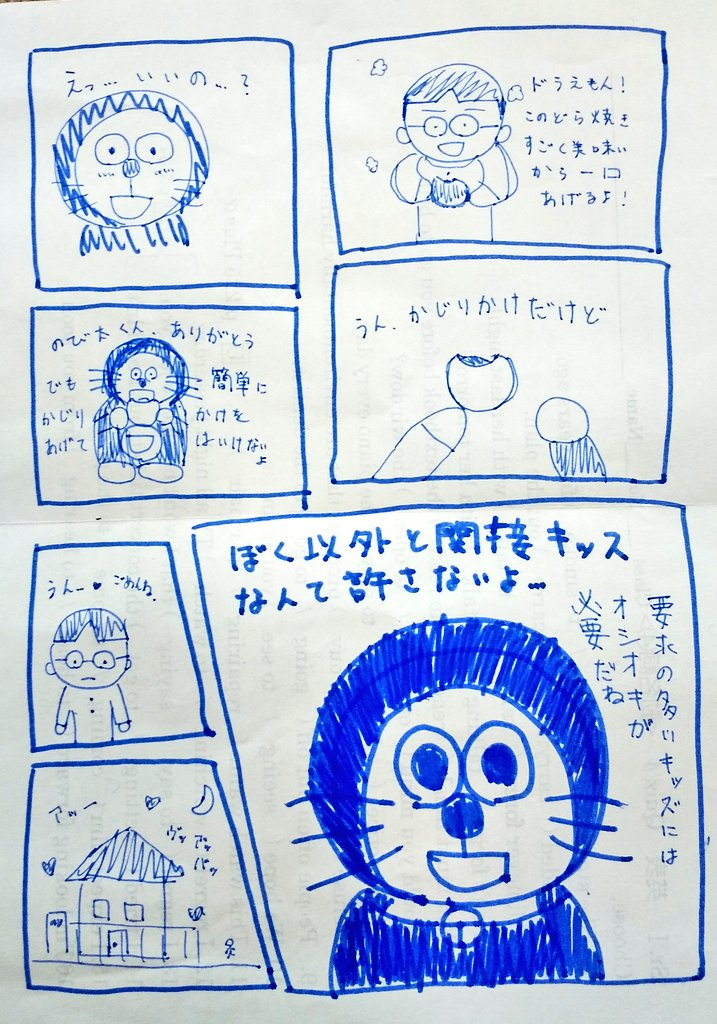 ドラえもん！
このどら焼き
すごく美味い
から一口
あげるよ！
えっ…いいの…？
うん、かじりかけだけど
のび太くん、ありがとう
でも 簡単に
かじり かけを
あげて はいけない
よ
ぼく以外と間接キッス
なんて許さないよ…
要求の多いキッズには
オシオキが
必要だね
うんー♥ごめんね。
アッー